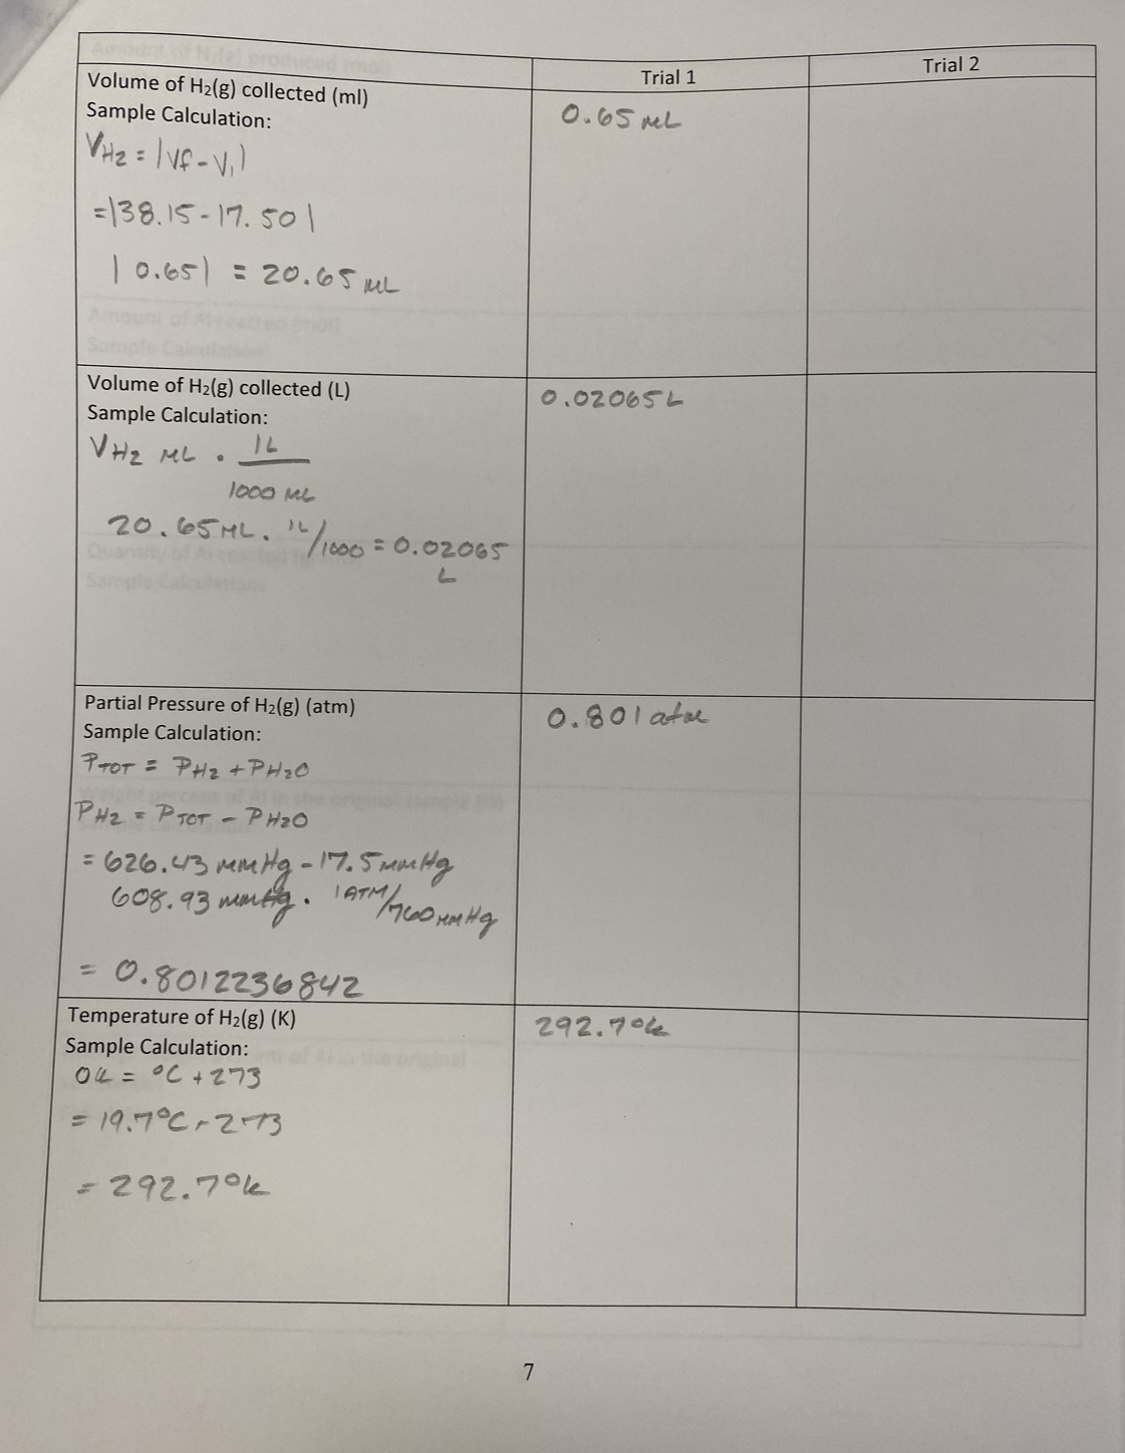 Trial 1
Trial 2
Volume of H₂(g) collected (ml)
Sample Calculation:
V H2 = |Vf - V₁|
=|38.15 - 17.50|
|0.65| = 20.65 mL
0.65 mL
Volume of H₂(g) collected (L)
Sample Calculation:
V H2 ML · 1L
1000 ML
20.65 ML. 1L/1000 = 0.02065
L
0.02065 L
Partial Pressure of H₂(g) (atm)
Sample Calculation:
PTOT = PH2 + PH2O
PH2 = PTOT - PH2O
= 626.43 mmHg - 17.5 mmHg
608.93 mmHg. 1 ATM/760 mmHg
= 0.8012236842
0.801 atm
Temperature of H₂(g) (K)
Sample Calculation:
= °C + 273
= 19.7°C - 273
= 292.7°k
292.7°k
7